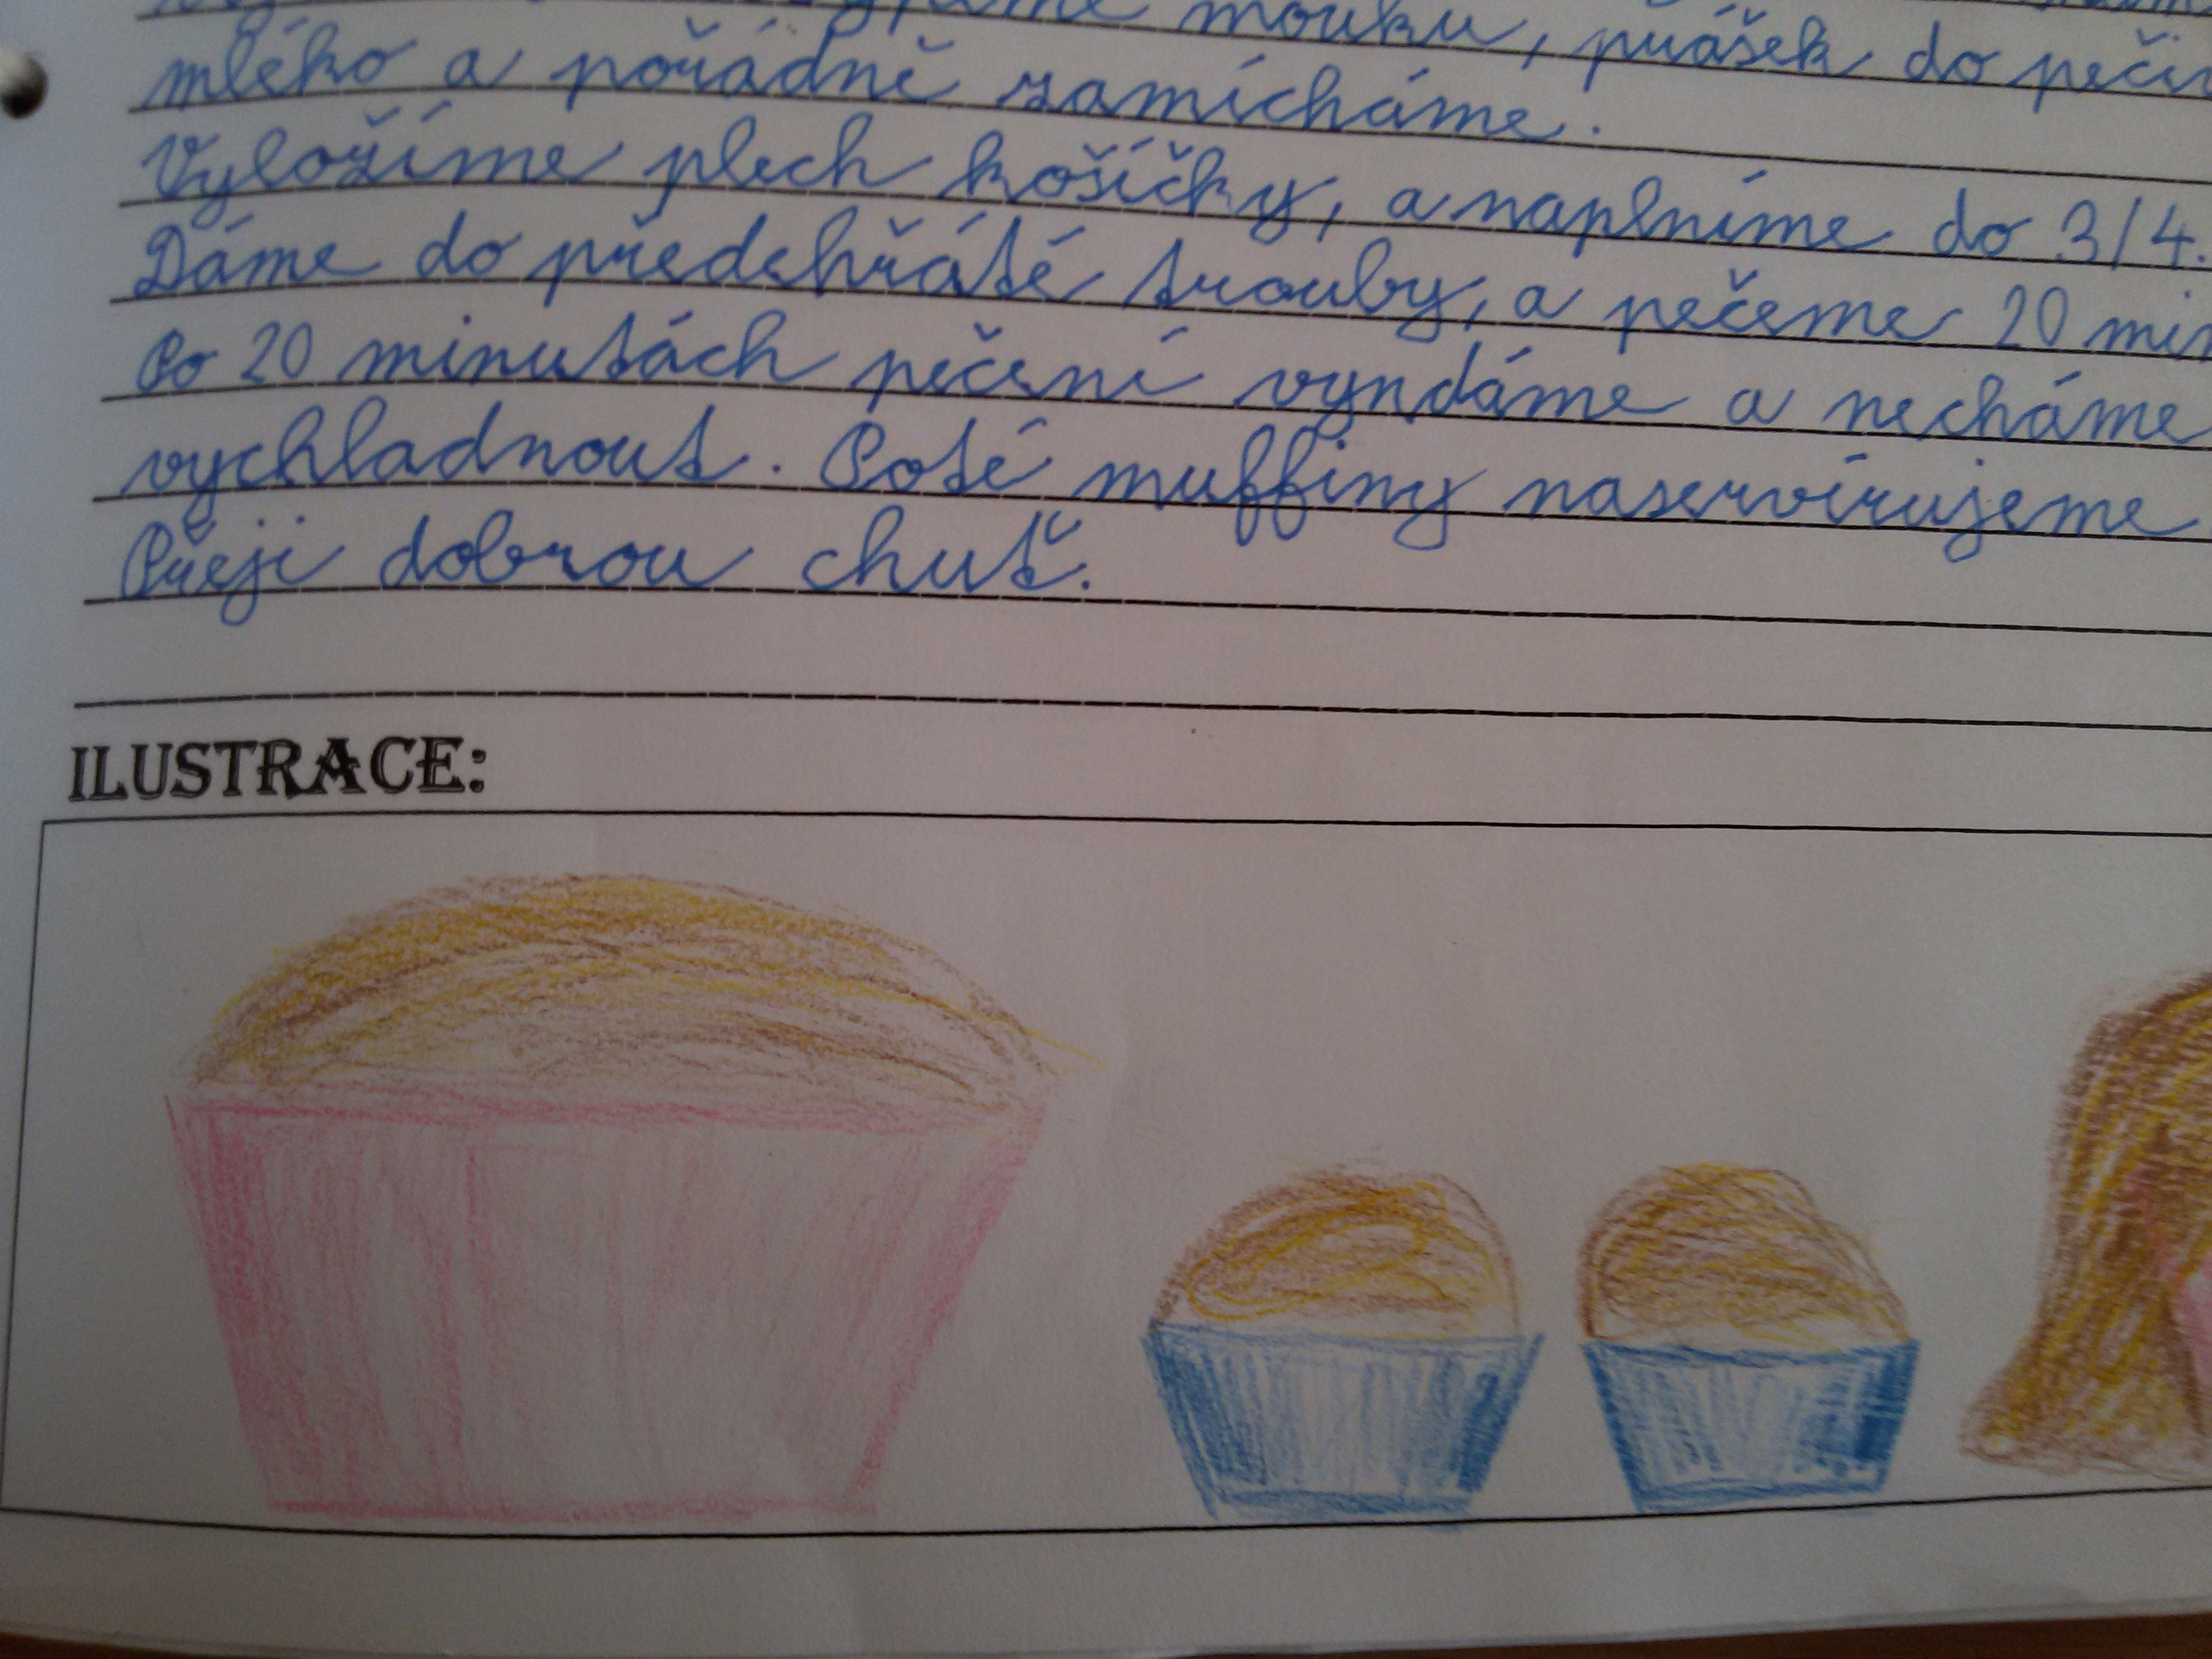 mouku, prášek do
mléko a pořádně zamícháme.
Vyložíme plech košíčky, a naplníme do 3/4.
Dáme do předehřáté trouby, a pečeme 20
Po 20 minutách pečení vyndáme a necháme
vychladnout. Poté muffiny naservírujeme
Přeji dobrou chuť.
ILUSTRACE: